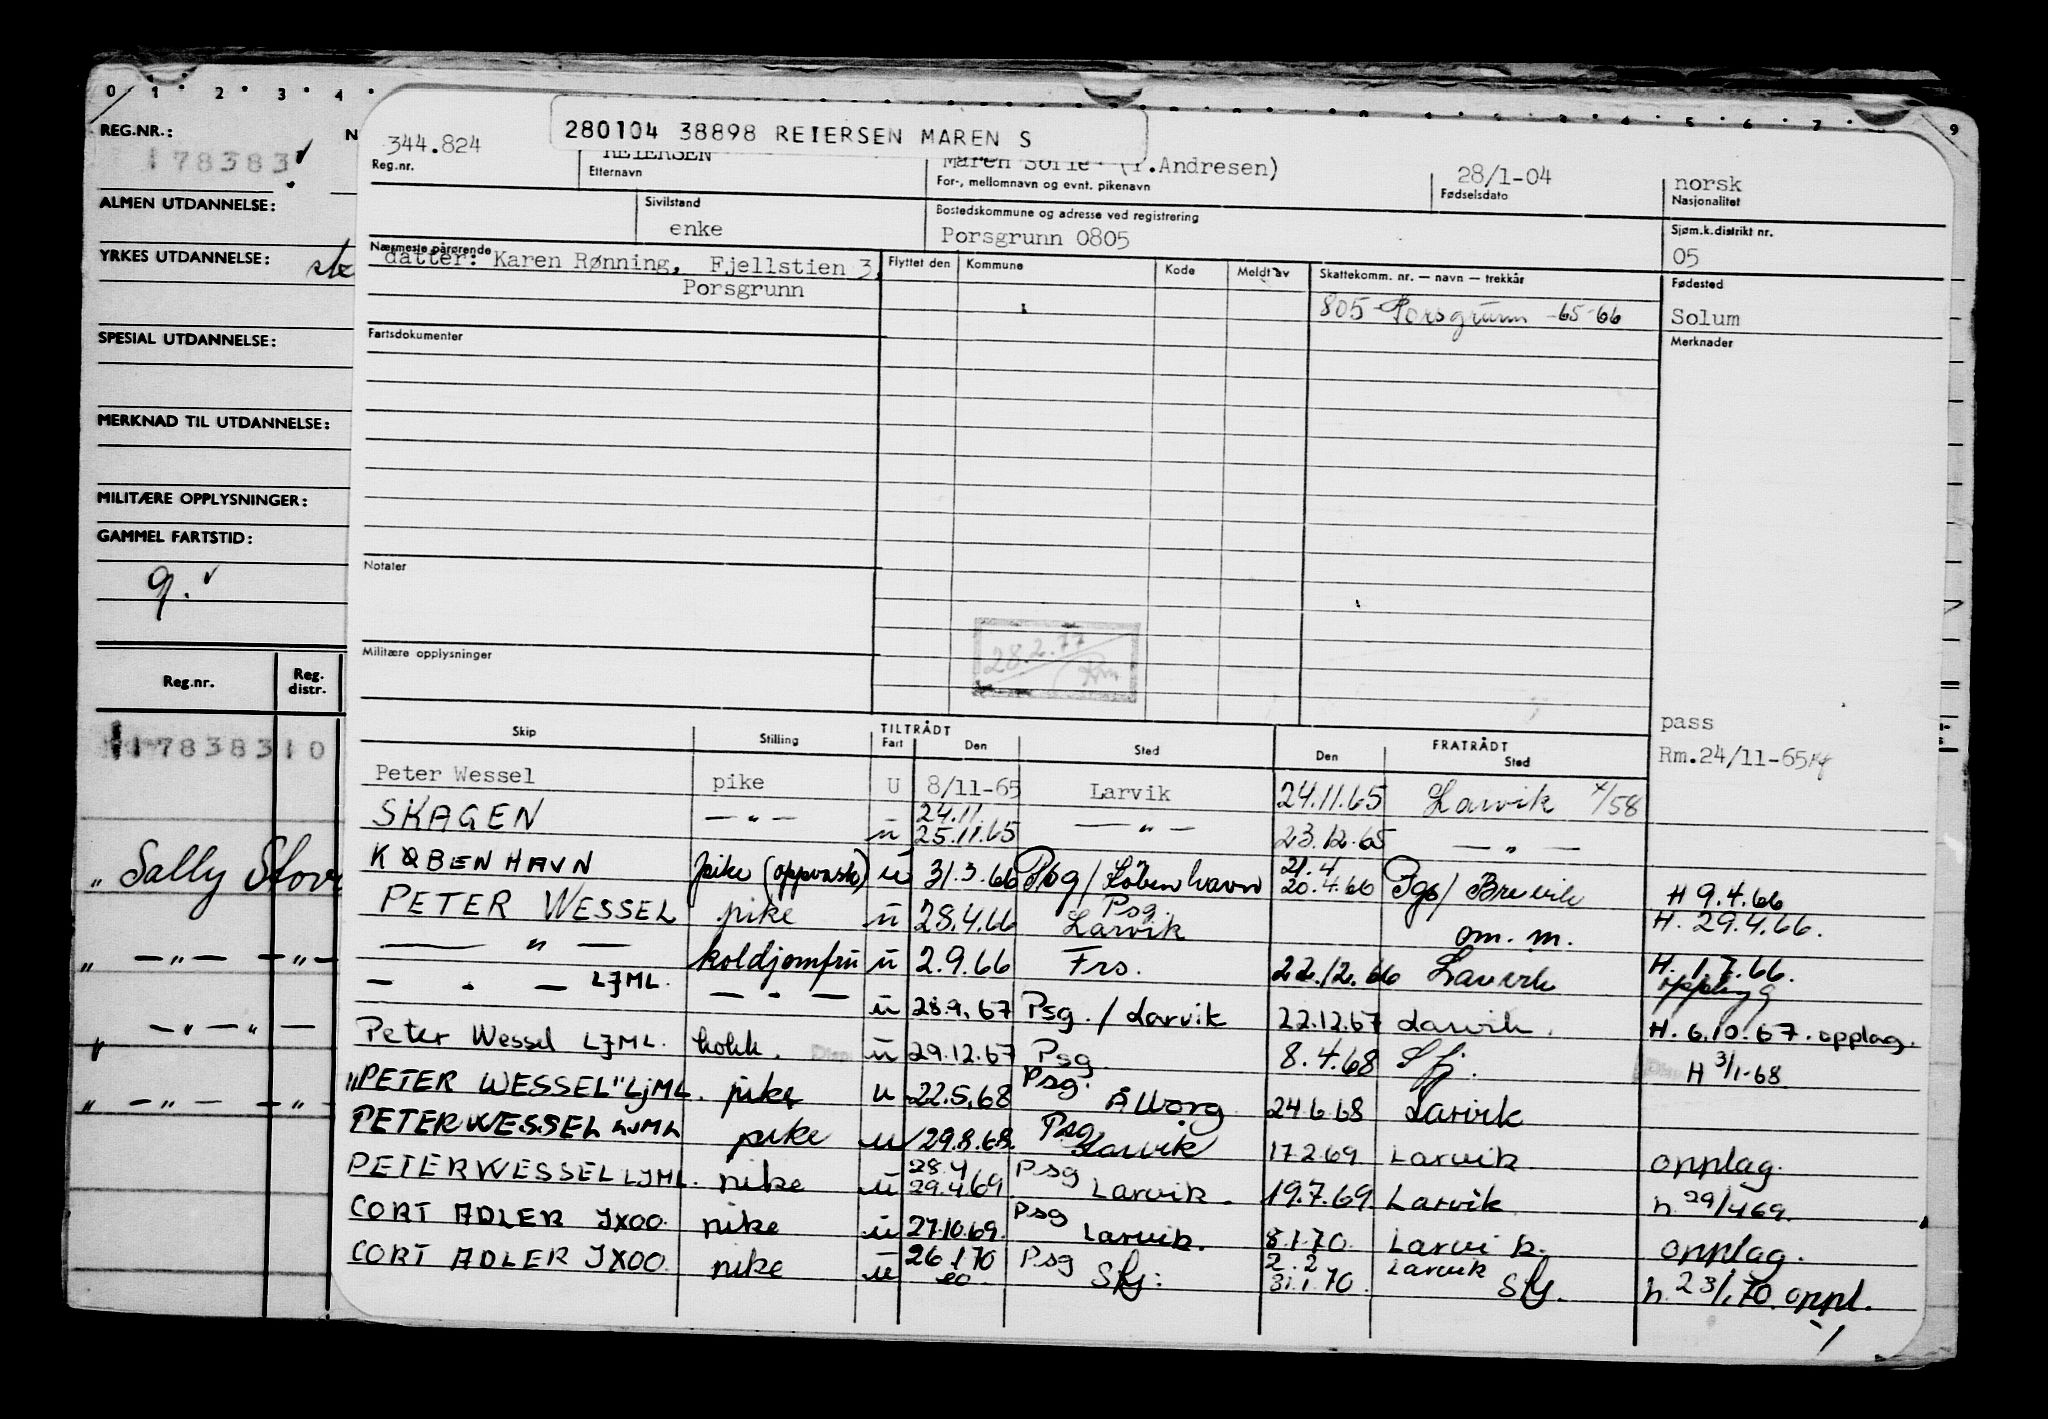 0 1 2 3 4
5 6 7 9
REG.NR.:
178383
ALMEN UTDANNELSE:
YRKES UTDANNELSE:
SPESIAL UTDANNELSE:
MERKNAD TIL UTDANNELSE:
MILITÆRE OPPLYSNINGER:
GAMMEL FARTSTID:
9.
Reg.nr. Reg. distr.
17838310
" Sally Stov
" — " — — " —
" — " — " —
" — " — — " —
280104 38898 REIERSEN MAREN S
344.824 REIERSEN Maren Sofie (f.Andresen) 28/1-04 norsk
Reg.nr. Etternavn For-, mellomnavn og evnt. pikenavn Fødselsdato Nasjonalitet
Sivilstand Bostedskommune og adresse ved registrering Sjøm.k.distrikt nr.
enke Porsgrunn 0805 05
Nærmeste pårørende Flyttet den Kommune Kode Meldt av Skattekomm. nr. — navn — trekkår Fødested
datter: Karen Rønning, Fjellstien 3,
Porsgrunn 805 Porsgrunn -65-66 Solum
Fartsdokumenter Merknader
Notater
28.2.77
Militære opplysninger
Skip Stilling TILTRÅDT FRATRÅDT
Fart Den Sted Den Sted
pass
Rm.24/11-65
Peter Wessel pike U 8/11-65 Larvik 24.11.65 Larvik 4/58
SKAGEN — " — u 24.11 25.11.65 — " — 23.12.65 — " —
KØBENHAVN pike (oppvask) u 31.3.66 Psg / København 21.4 20.4.66 / Brevik H 9.4.66
PETER WESSEL pike u 28.4.66 Psg. Larvik om. m. H. 29.4.66.
— " — koldjomfru u 2.9.66 Frs. 22.12.66 Larvik H. 1.7.66.
— " — LJML. — " — u 28.9.67 Psg. / Larvik 22.12.67 Larvik. H. 6.10.67. opplag.
Peter Wessel LJML. kokk. u 29.12.67 Psg 8.4.68 Sfj. H 3/1-68
"PETER WESSEL" LJML. pike u 22.5.68 Psg. Ålborg 24.6.68 Larvik
PETER WESSEL LJML pike u 29.8.68. Psg Larvik 17.2.69 Larvik. opplag.
PETER WESSEL LJML. pike u 28.4 29.4.69 Psg Larvik. 19.7.69 Larvik h. 29/4 69.
CORT ADLER JXOO. pike u 27.10.69. Psg Larvik. 8.1.70. Larvik. opplag.
CORT ADLER JXOO pike u 26.1.70 Psg Sfj. 2.2 31.1.70. Larvik Sfj. h. 23/1.70. oppl.